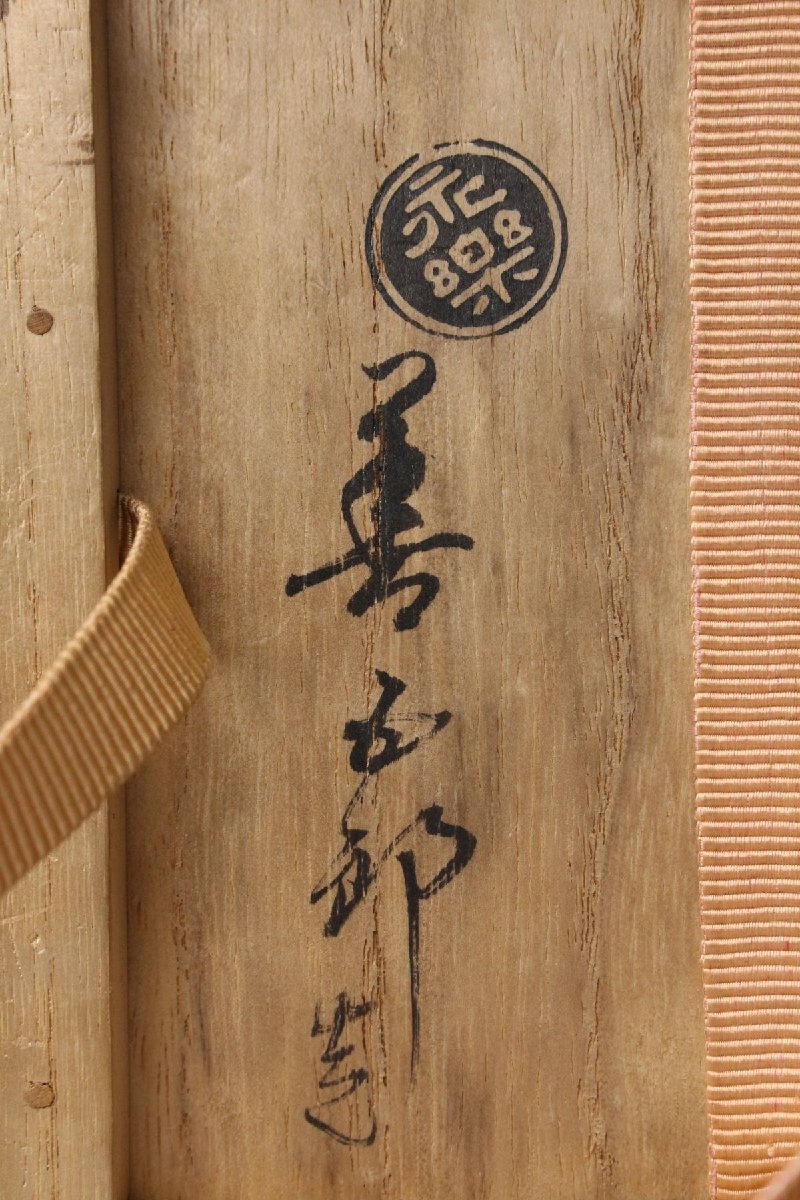 永樂
善五郎